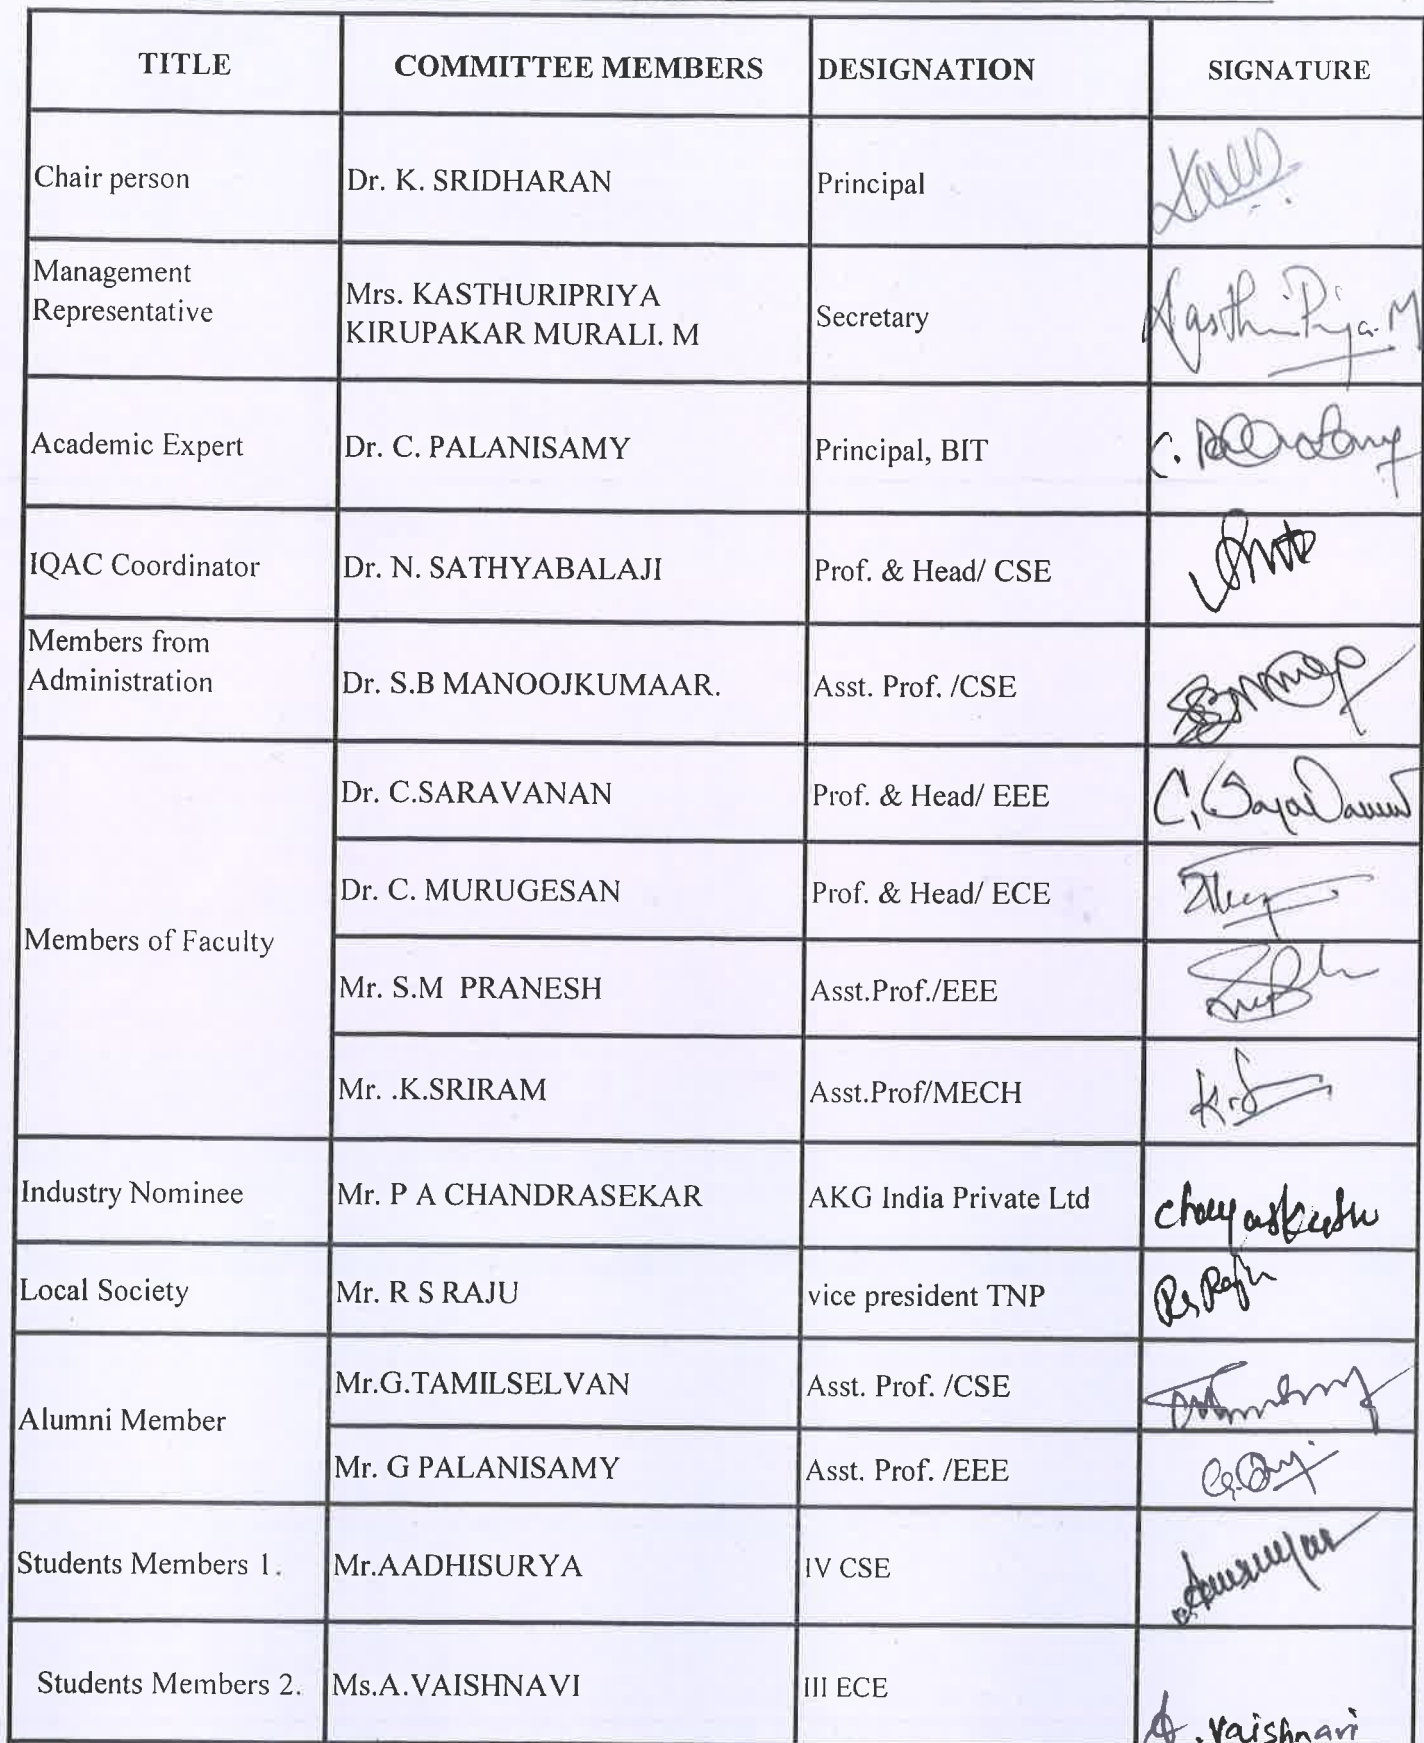 TITLE COMMITTEE MEMBERS DESIGNATION SIGNATURE
Chair person Dr. K. SRIDHARAN Principal
Management
Representative
Mrs. KASTHURIPRIYA
KIRUPAKAR MURALI. M
Secretary
Academic Expert Dr. C. PALANISAMY Principal, BIT
IQAC Coordinator Dr. N. SATHYABALAJI Prof. & Head/ CSE
Members from
Administration
Dr. S.B MANOOJKUMAAR. Asst. Prof. /CSE
Members of Faculty
Dr. C.SARAVANAN Prof. & Head/ EEE
Dr. C. MURUGESAN Prof. & Head/ ECE
Mr. S.M PRANESH Asst.Prof./EEE
Mr. .K.SRIRAM Asst.Prof/MECH
Industry Nominee Mr. P A CHANDRASEKAR AKG India Private Ltd
Local Society Mr. R S RAJU vice president TNP
Alumni Member
Mr.G.TAMILSELVAN Asst. Prof. /CSE
Mr. G PALANISAMY Asst. Prof. /EEE
Students Members 1. Mr.AADHISURYA IV CSE
Students Members 2. Ms.A.VAISHNAVI III ECE A. Vaishnavi